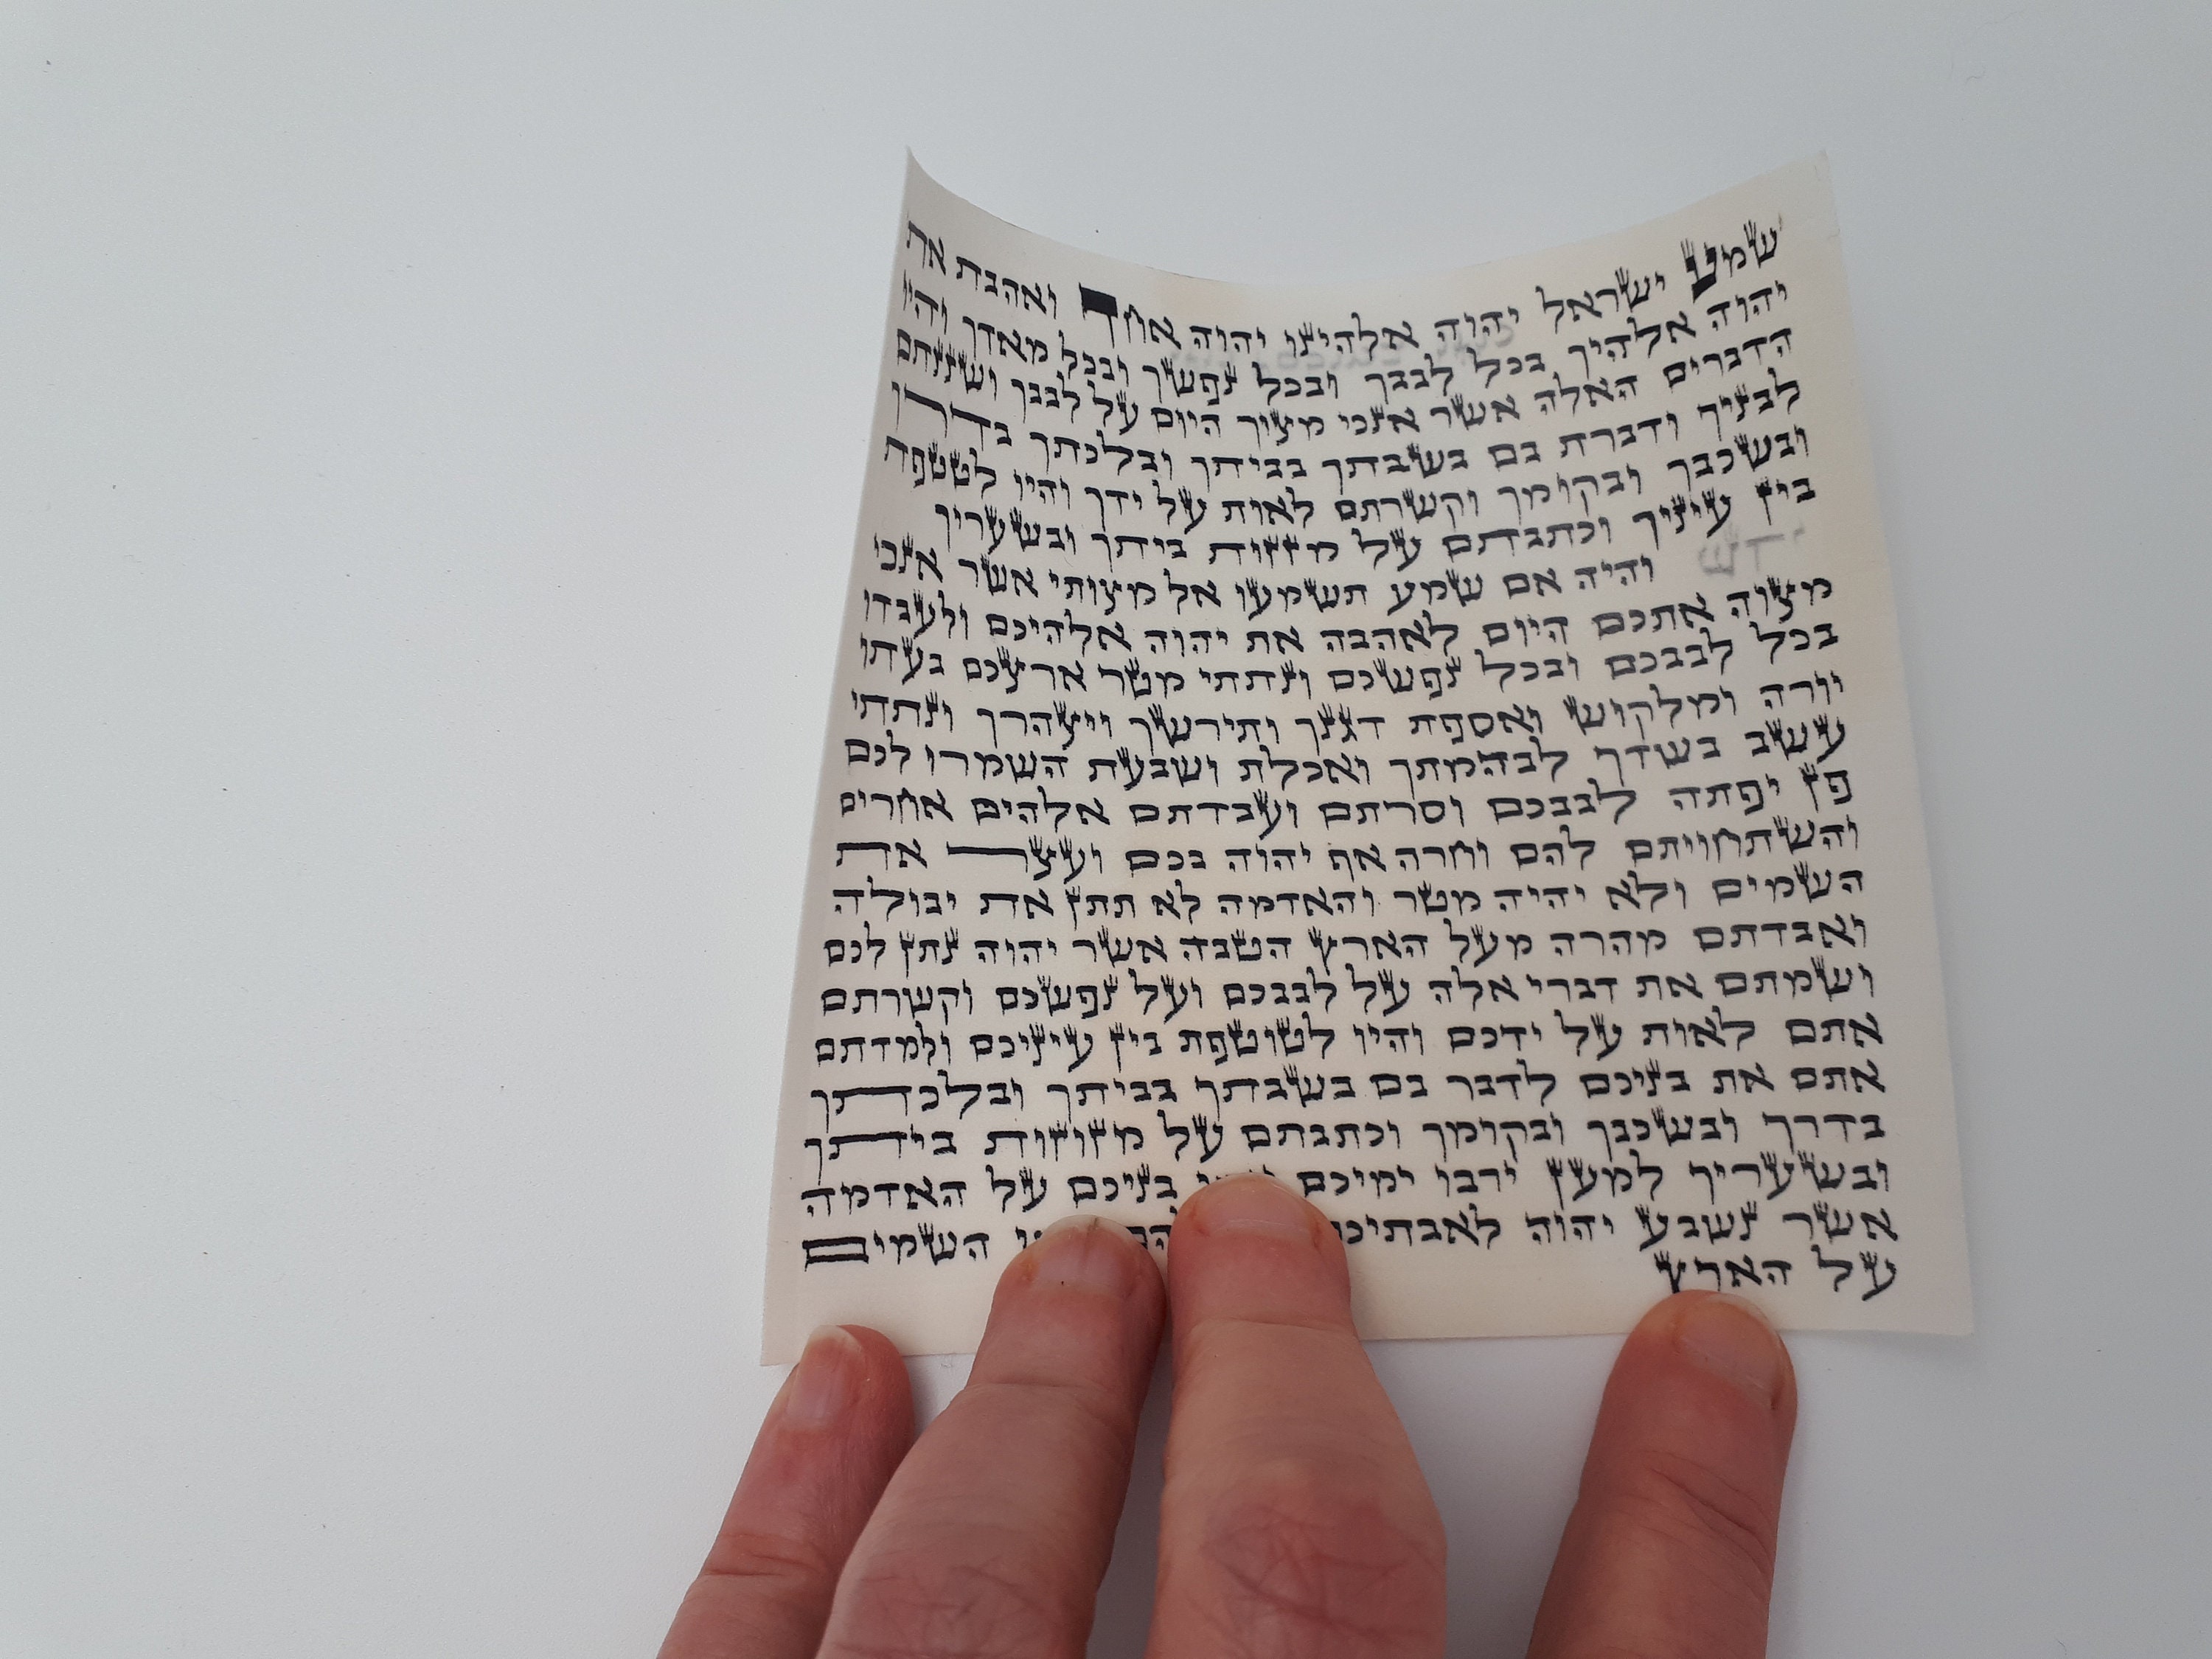 שמע ישראל יהוה אלהינו יהוה אחד ואהבת את
יהוה אלהיך בכל לבבך ובכל נפשך ובכל מאדך והיו
הדברים האלה אשר אנכי מצוך היום על לבבך ושננתם
לבניך ודברת בם בשבתך בביתך ובלכתך בדרך
ובשכבך ובקומך וקשרתם לאות על ידך והיו לטטפת
בין עיניך וכתבתם על מזזות ביתך ובשעריך
והיה אם שמע תשמעו אל מצותי אשר אנכי
מצוה אתכם היום לאהבה את יהוה אלהיכם ולעבדו
בכל לבבכם ובכל נפשכם ונתתי מטר ארצכם בעתו
יורה ומלקוש ואספת דגנך ותירשך ויצהרך ונתתי
עשב בשדך לבהמתך ואכלת ושבעת השמרו לכם
פן יפתה לבבכם וסרתם ועבדתם אלהים אחרים
והשתחויתם להם וחרה אף יהוה בכם ועצר את
השמים ולא יהיה מטר והאדמה לא תתן את יבולה
ואבדתם מהרה מעל הארץ הטבה אשר יהוה נתן לכם
ושמתם את דברי אלה על לבבכם ועל נפשכם וקשרתם
אתם לאות על ידכם והיו לטוטפת בין עיניכם ולמדתם
אתם את בניכם לדבר בם בשבתך בביתך ובלכתך
בדרך ובשכבך ובקומך וכתבתם על מזוזות ביתך
ובשעריך למען ירבו ימיכם בניכם על האדמה
אשר נשבע יהוה לאבתיכם השמים
על הארץ